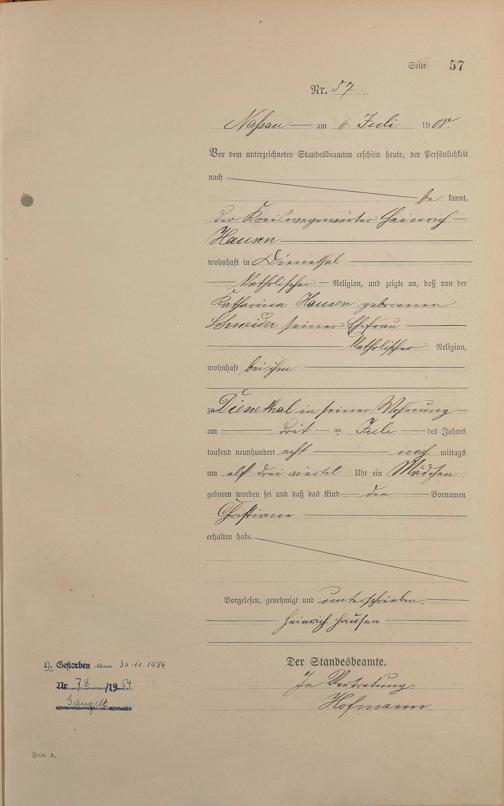 Seite 57
Nr. 57
Nassau am 6. Juli 1908.
Vor dem unterzeichneten Standesbeamten erschien heute, der Persönlichkeit
nach
be kannt,
der Kreiswegewärter Heinrich
Hausen
wohnhaft in Dienethal
katholischer Religion, und zeigte an, daß von der
Katharina Hausen geborenen
Schneider seiner Ehefrau
katholischer Religion,
wohnhaft bei ihm
zu Dienethal in seiner Wohnung
am drit im Juli des Jahres
tausend neunhundert acht nach mittags
um elf drei viertel Uhr ein Mädchen
geboren worden sei und daß das Kind den Vornamen
Christiane
erhalten habe.
Vorgelesen, genehmigt und unterschrieben.
Heinrich Hausen
Der Standesbeamte.
In Vertretung.
Hofmann
1). Gestorben am 30.11.1954
Nr. 78 /19 54
Gangelt
Form. A.